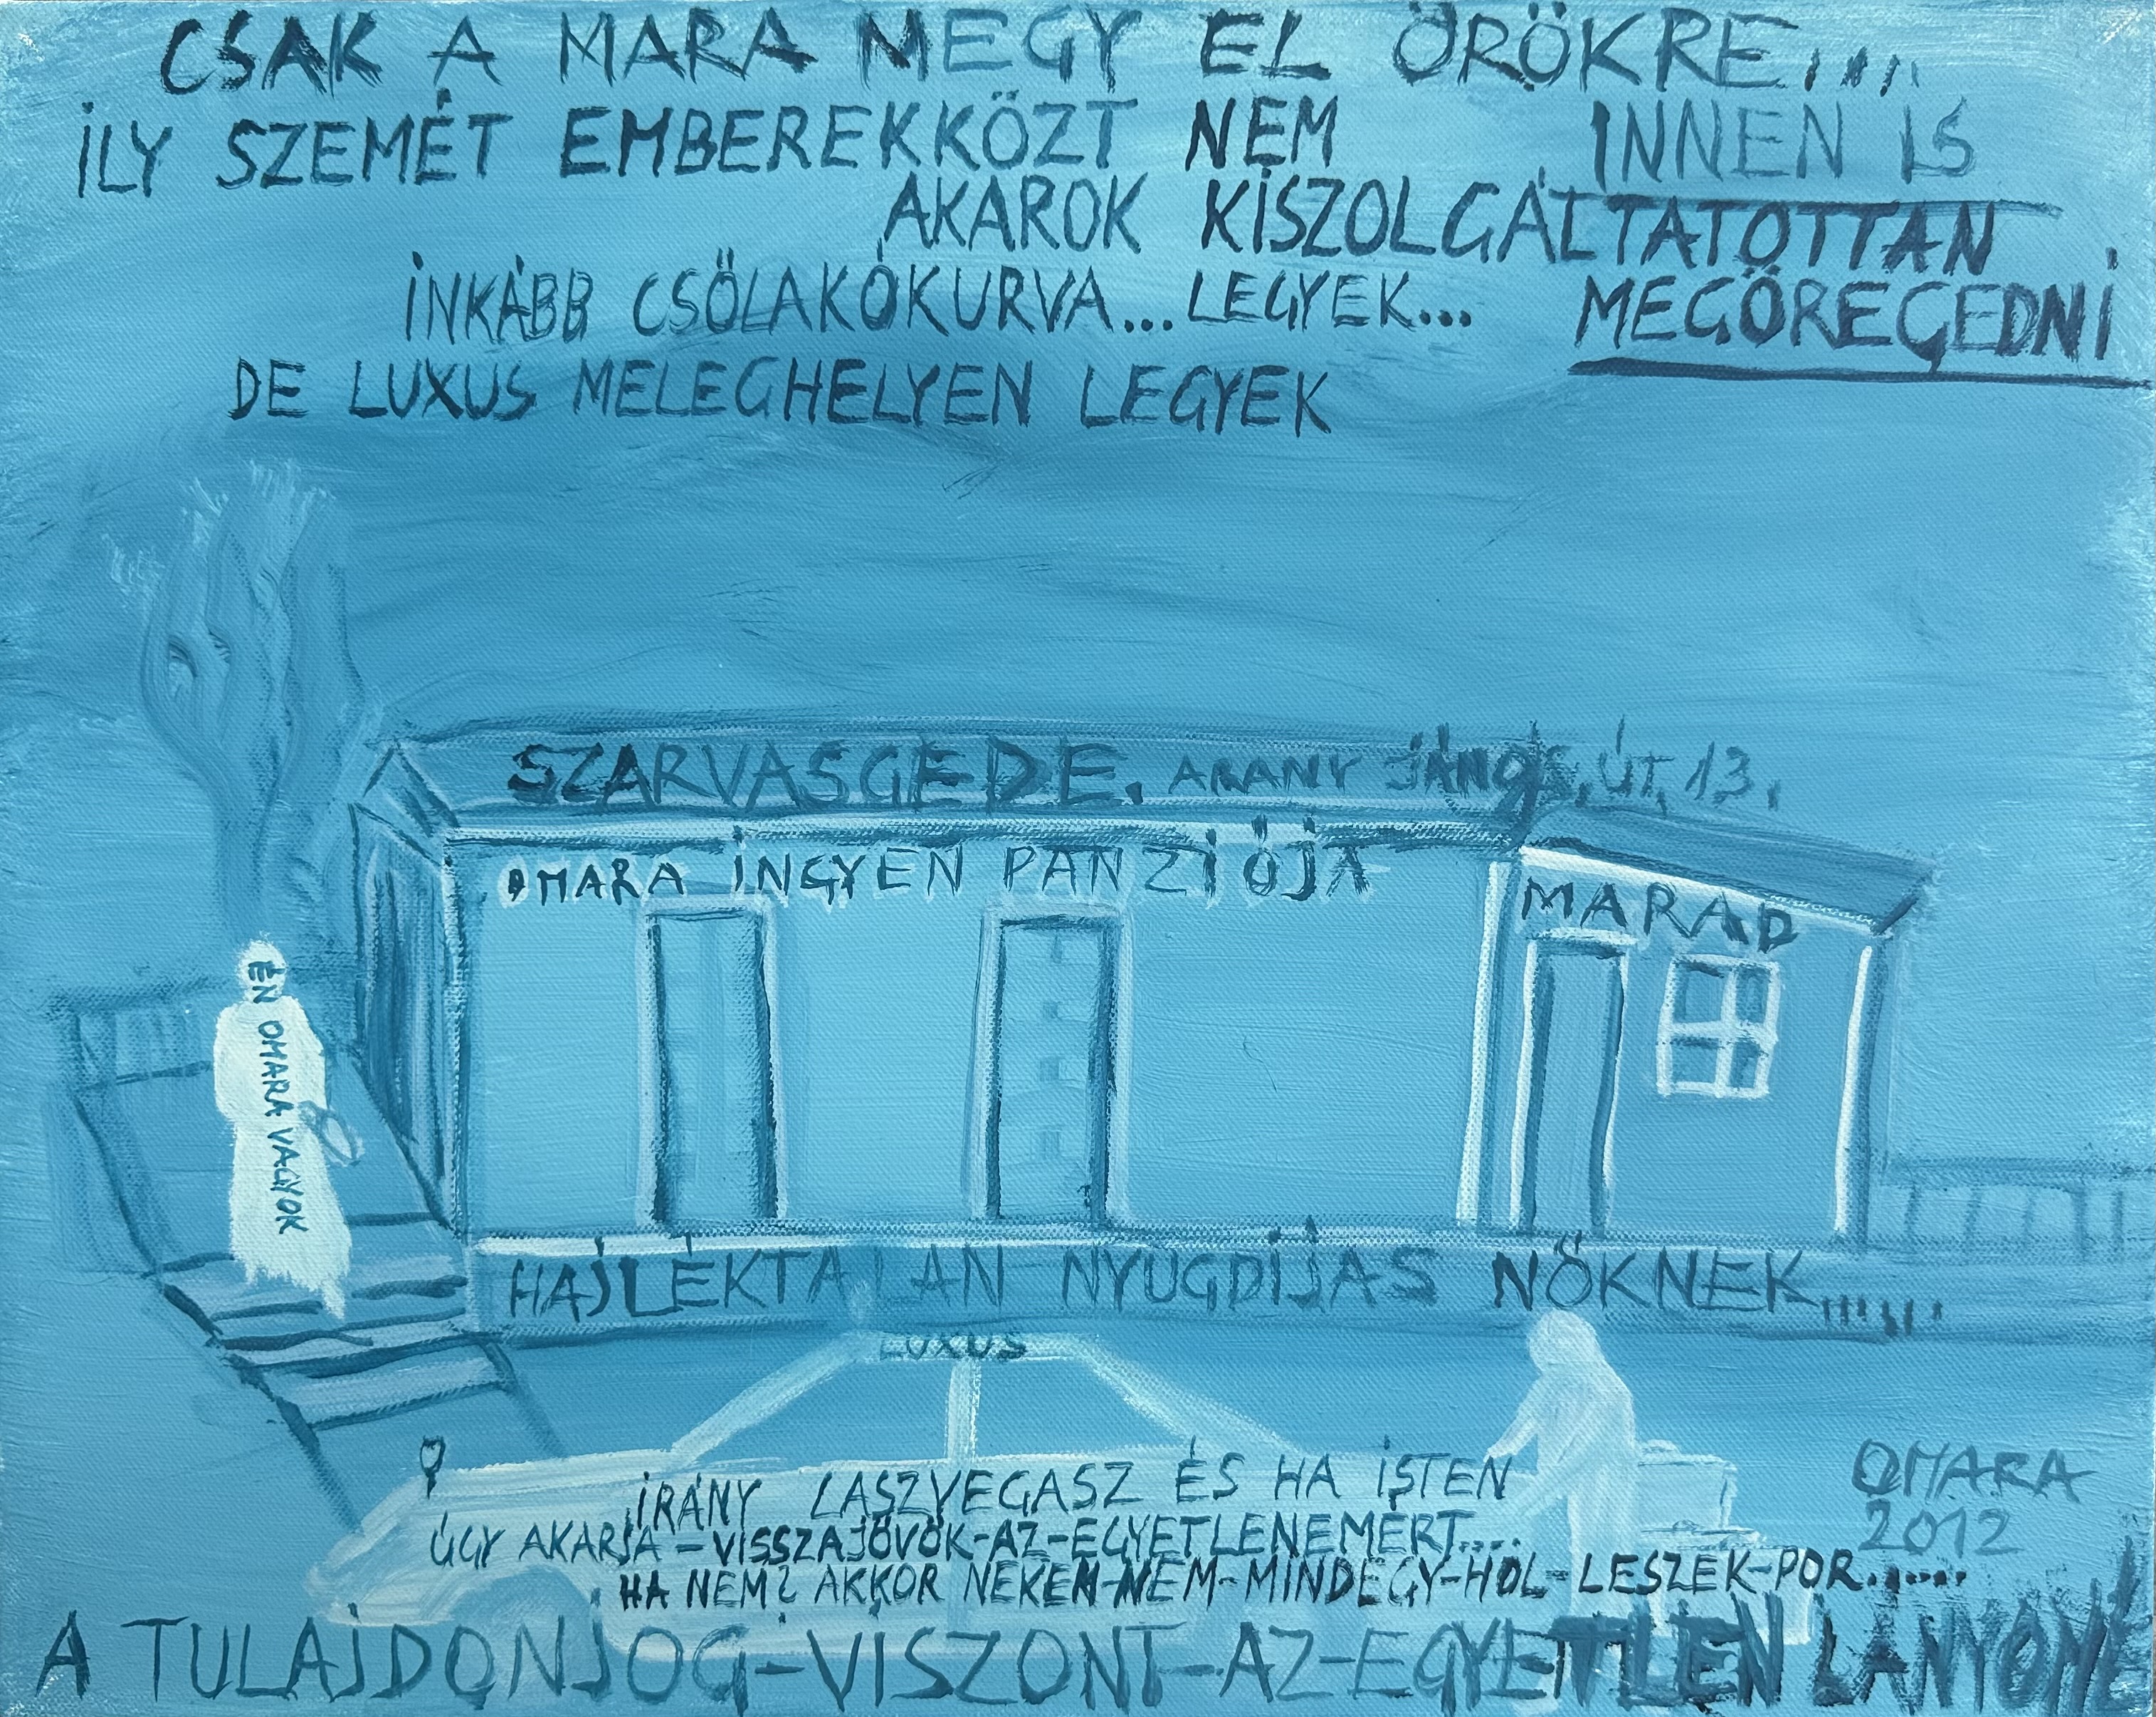 CSAK A MARA MEGY EL ÖRÖKRE....
INNEN IS
ILY SZEMÉT EMBEREKKÖZT NEM
AKAROK KISZOLGÁLTATOTTAN
MEGÖREGEDNI
INKÁBB CSÖLAKÓKURVA... LEGYEK...
DE LUXUS MELEGHELYEN LEGYEK
SZARVASGEDE. ARANY JÁNOS, ÚT, 13,
OMARA INGYEN PANZIÓJA
MARAD
ÉN OMARA VAGYOK
HAJLÉKTALAN NYUGDIJAS NŐKNEK......
LUXUS
IRÁNY LASZVEGASZ ÉS HA ISTEN
ÚGY AKARJA - VISSZAJÖVÖK-AZ-EGYETLENEMÉRT....
HA NEM? AKKOR NEKEM-NEM-MINDEGY-HOL-LESZEK-POR......
A TULAJDONJOG-VISZONT-AZ-EGYETLEN LÁNYOMÉ
OMARA
2012